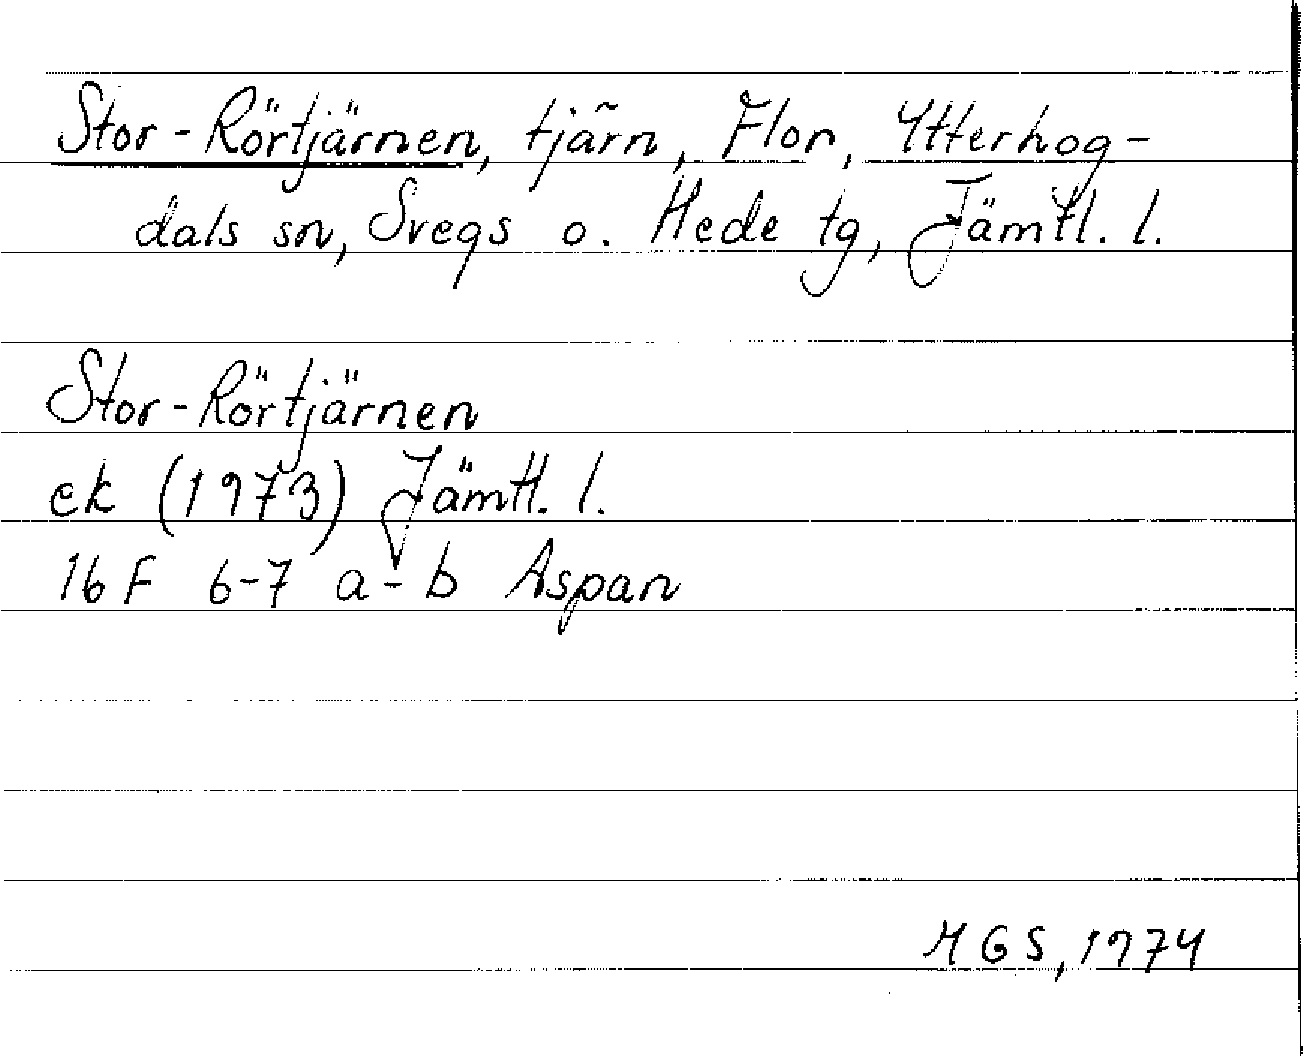 Stor-Rörtjärnen, tjärn, Flor, Ytterhog-
dals sn, Svegs o. Hede tg, Jämtl. l.
Stor-Rörtjärnen
ek (1973) Jämtl. l.
16 F 6-7 a-b Aspan
MGS, 1974